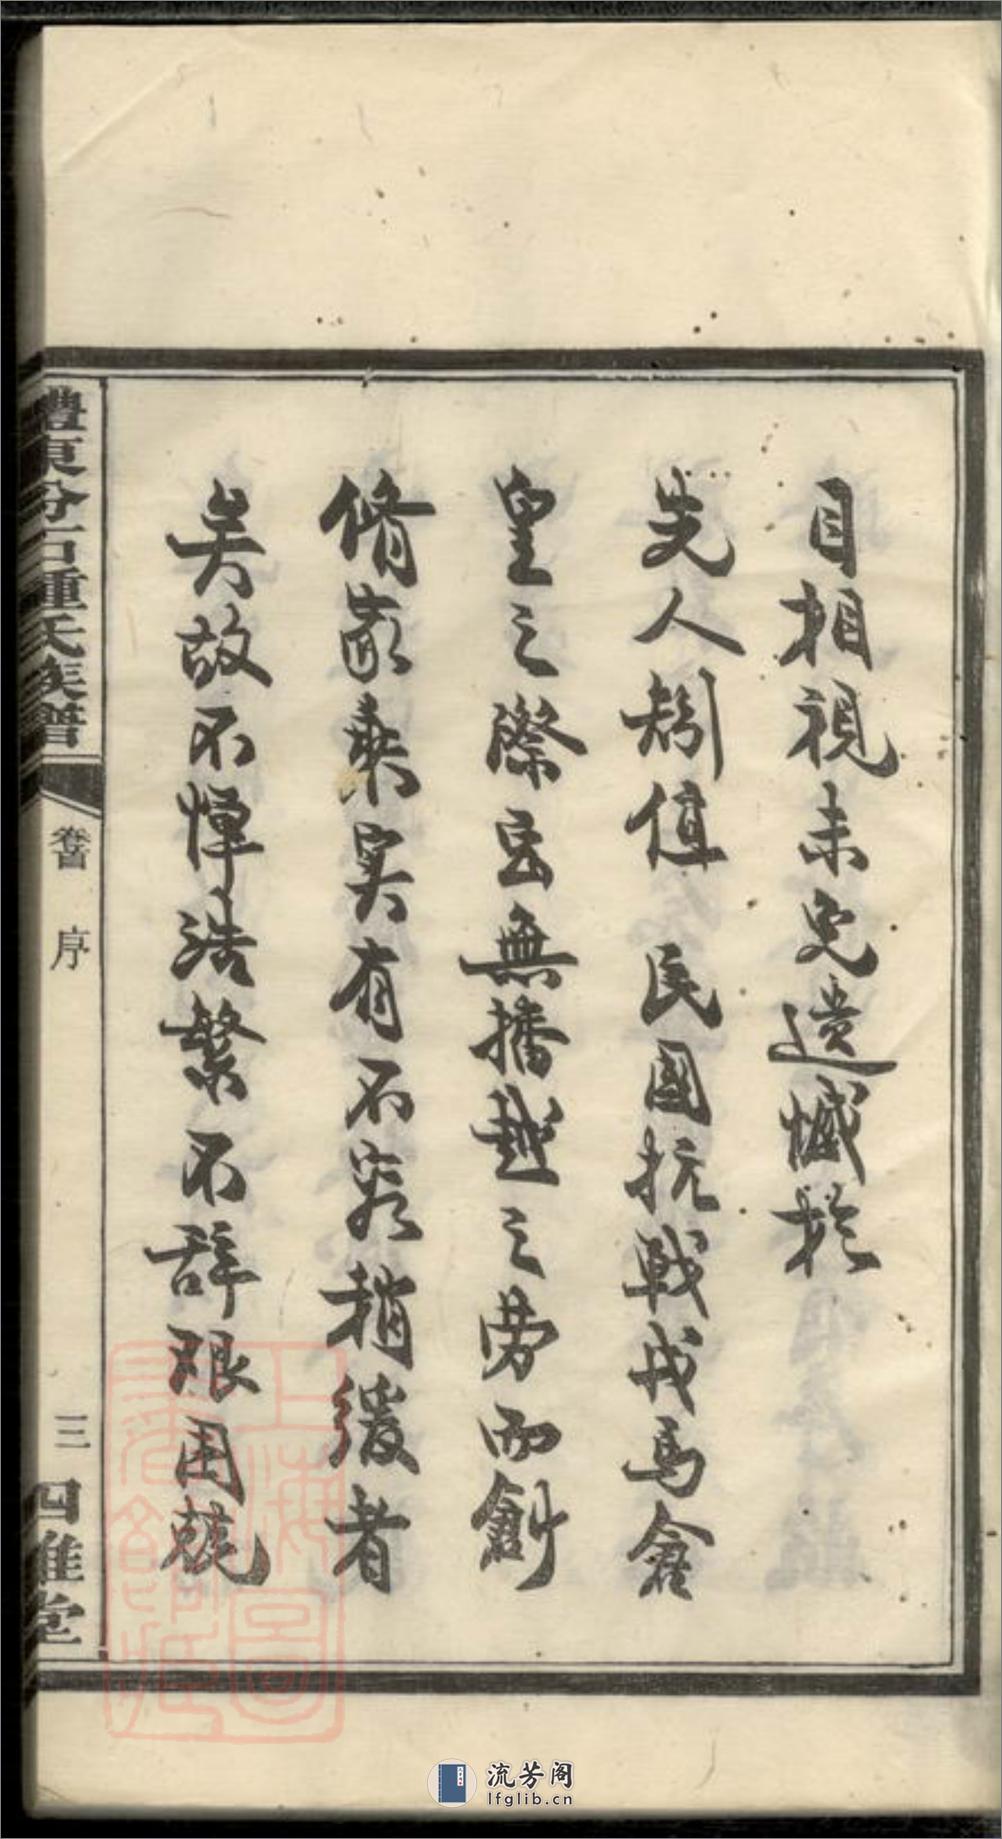 目相視未免遺憾於
先人矧值　民國抗戰戎馬倉
皇之際豈無播越之勞而創
脩家乘實有不容稍緩者
矣故不憚浩繁不辭艱困兢
澧東分石鍾氏族譜
卷首
序
三
四維堂
上海圖書館藏
流芳阁
lfglib.cn